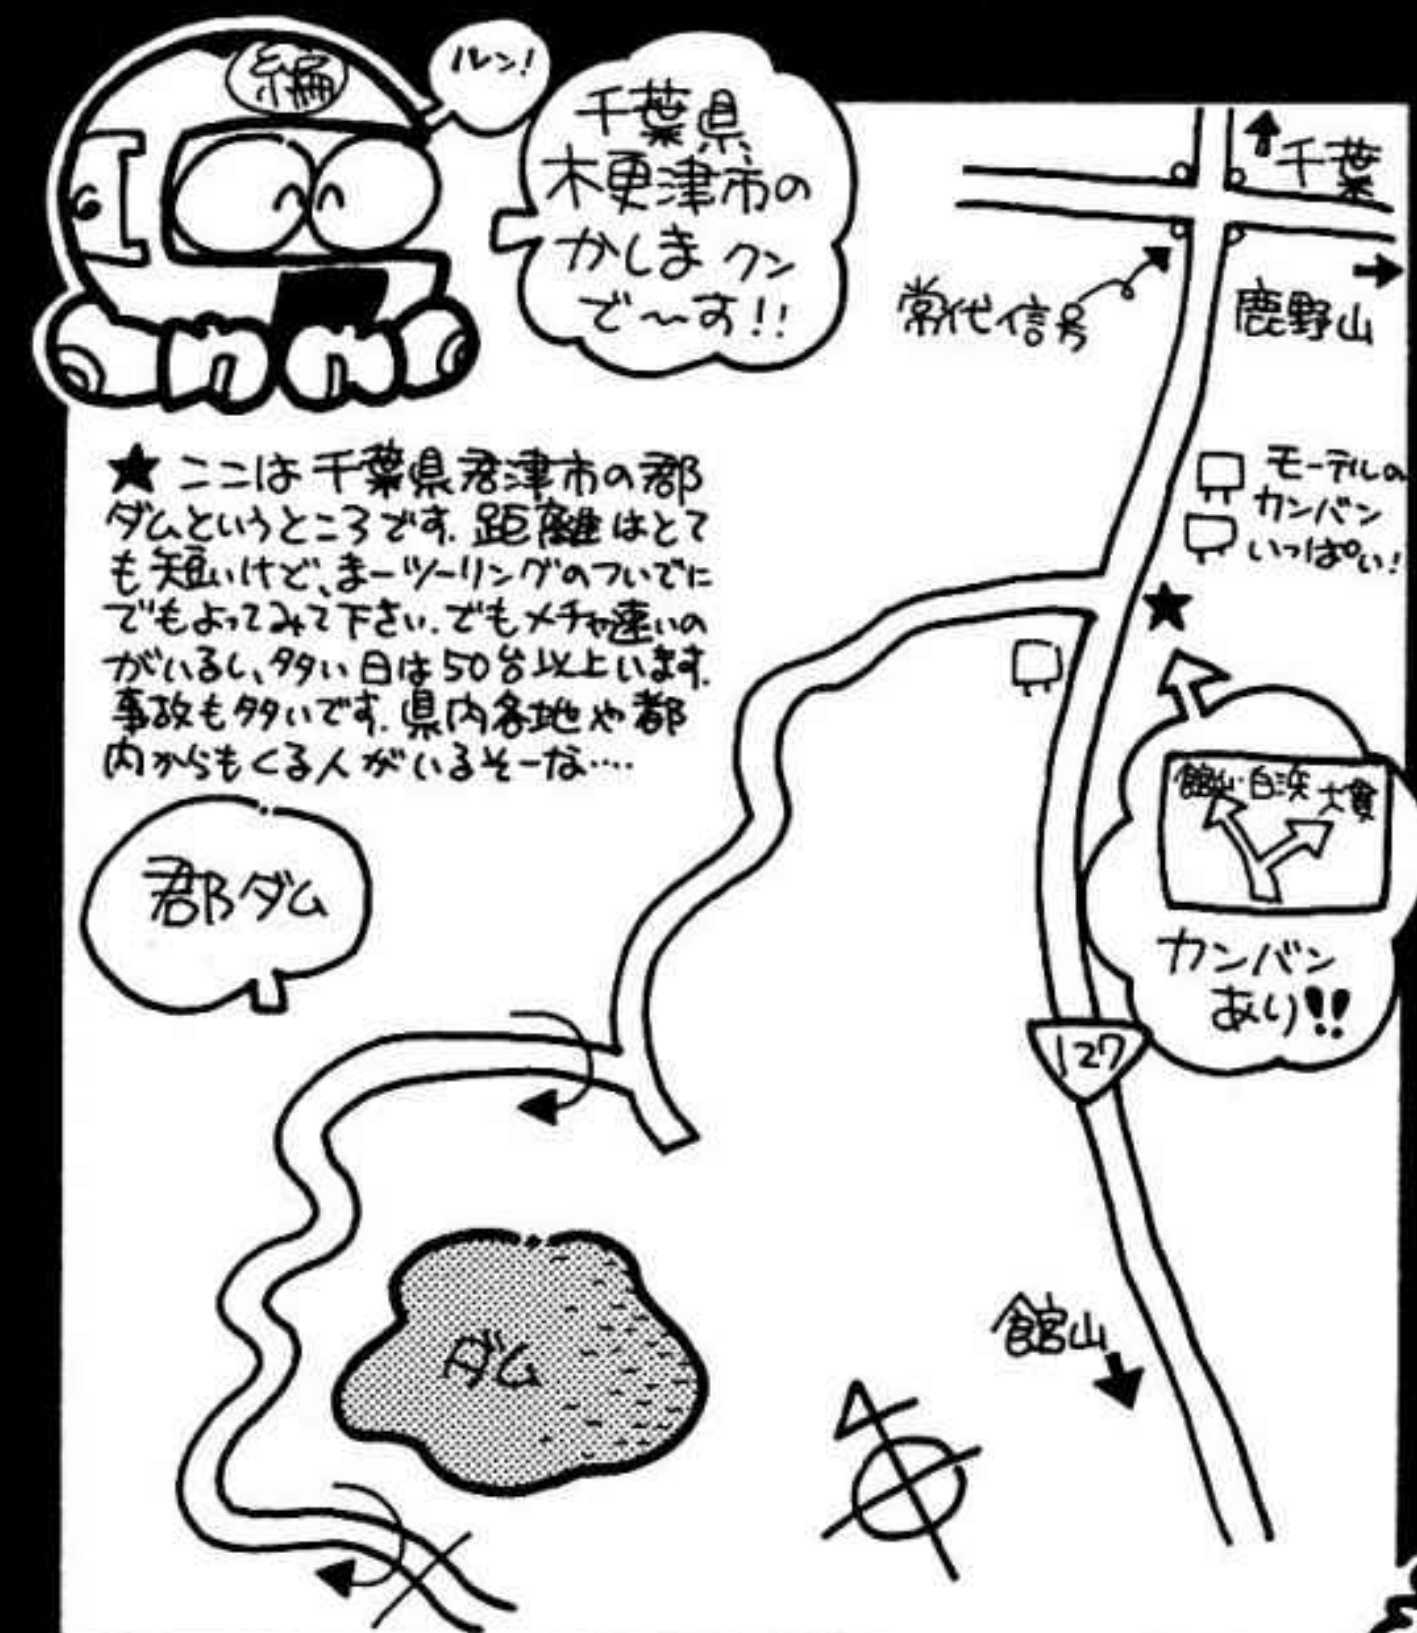 編
ルン!
千葉県
木更津市の
かしまクン
で〜す!!
↑千葉
常代信号
鹿野山
★ここは千葉県君津市の郡
ダムというところです.距離はとて
も短いけど、まーツーリングのついでに
でもよってみて下さい.でもメチャ速いの
がいるし、多い日は50台以上います.
事故も多いです.県内各地や都
内からもくる人がいるそーな‥‥
モーテルの
カンバン
いっぱい!
★
館山・白浜 大貫
カンバン
あり!!
郡ダム
127
ダム
館山